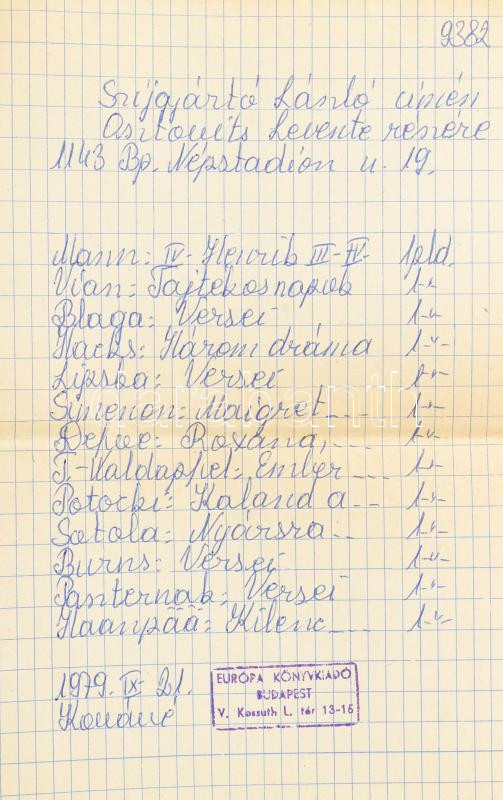 9382
Szíjgyártó László címén
Osztovits Levente részére
1143 Bp. Népstadion u. 19.
Mann: IV- Henrik III-IV- 1 pld.
Vian: Tajtékosnapok 1-"-
Blaga: Versei 1-"-
Hacks: Három dráma 1-"-
Lipska: Versei 1-"-
Simenon: Maigret... 1-"-
Defoe: Roxana, ... 1-"-
T-Waldapfel: Ember ... 1-"-
Potocki: Kaland a... 1-"-
Sotola: Nyársra... 1-"-
Burns: Versei 1-"-
Paszternak: Versei 1-"-
Haanpää: Kilenc... 1-"-
1979. IX- 21.
EURÓPA KÖNYVKIADÓ
BUDAPEST
V. Kossuth L. tér 13-15
darabanth